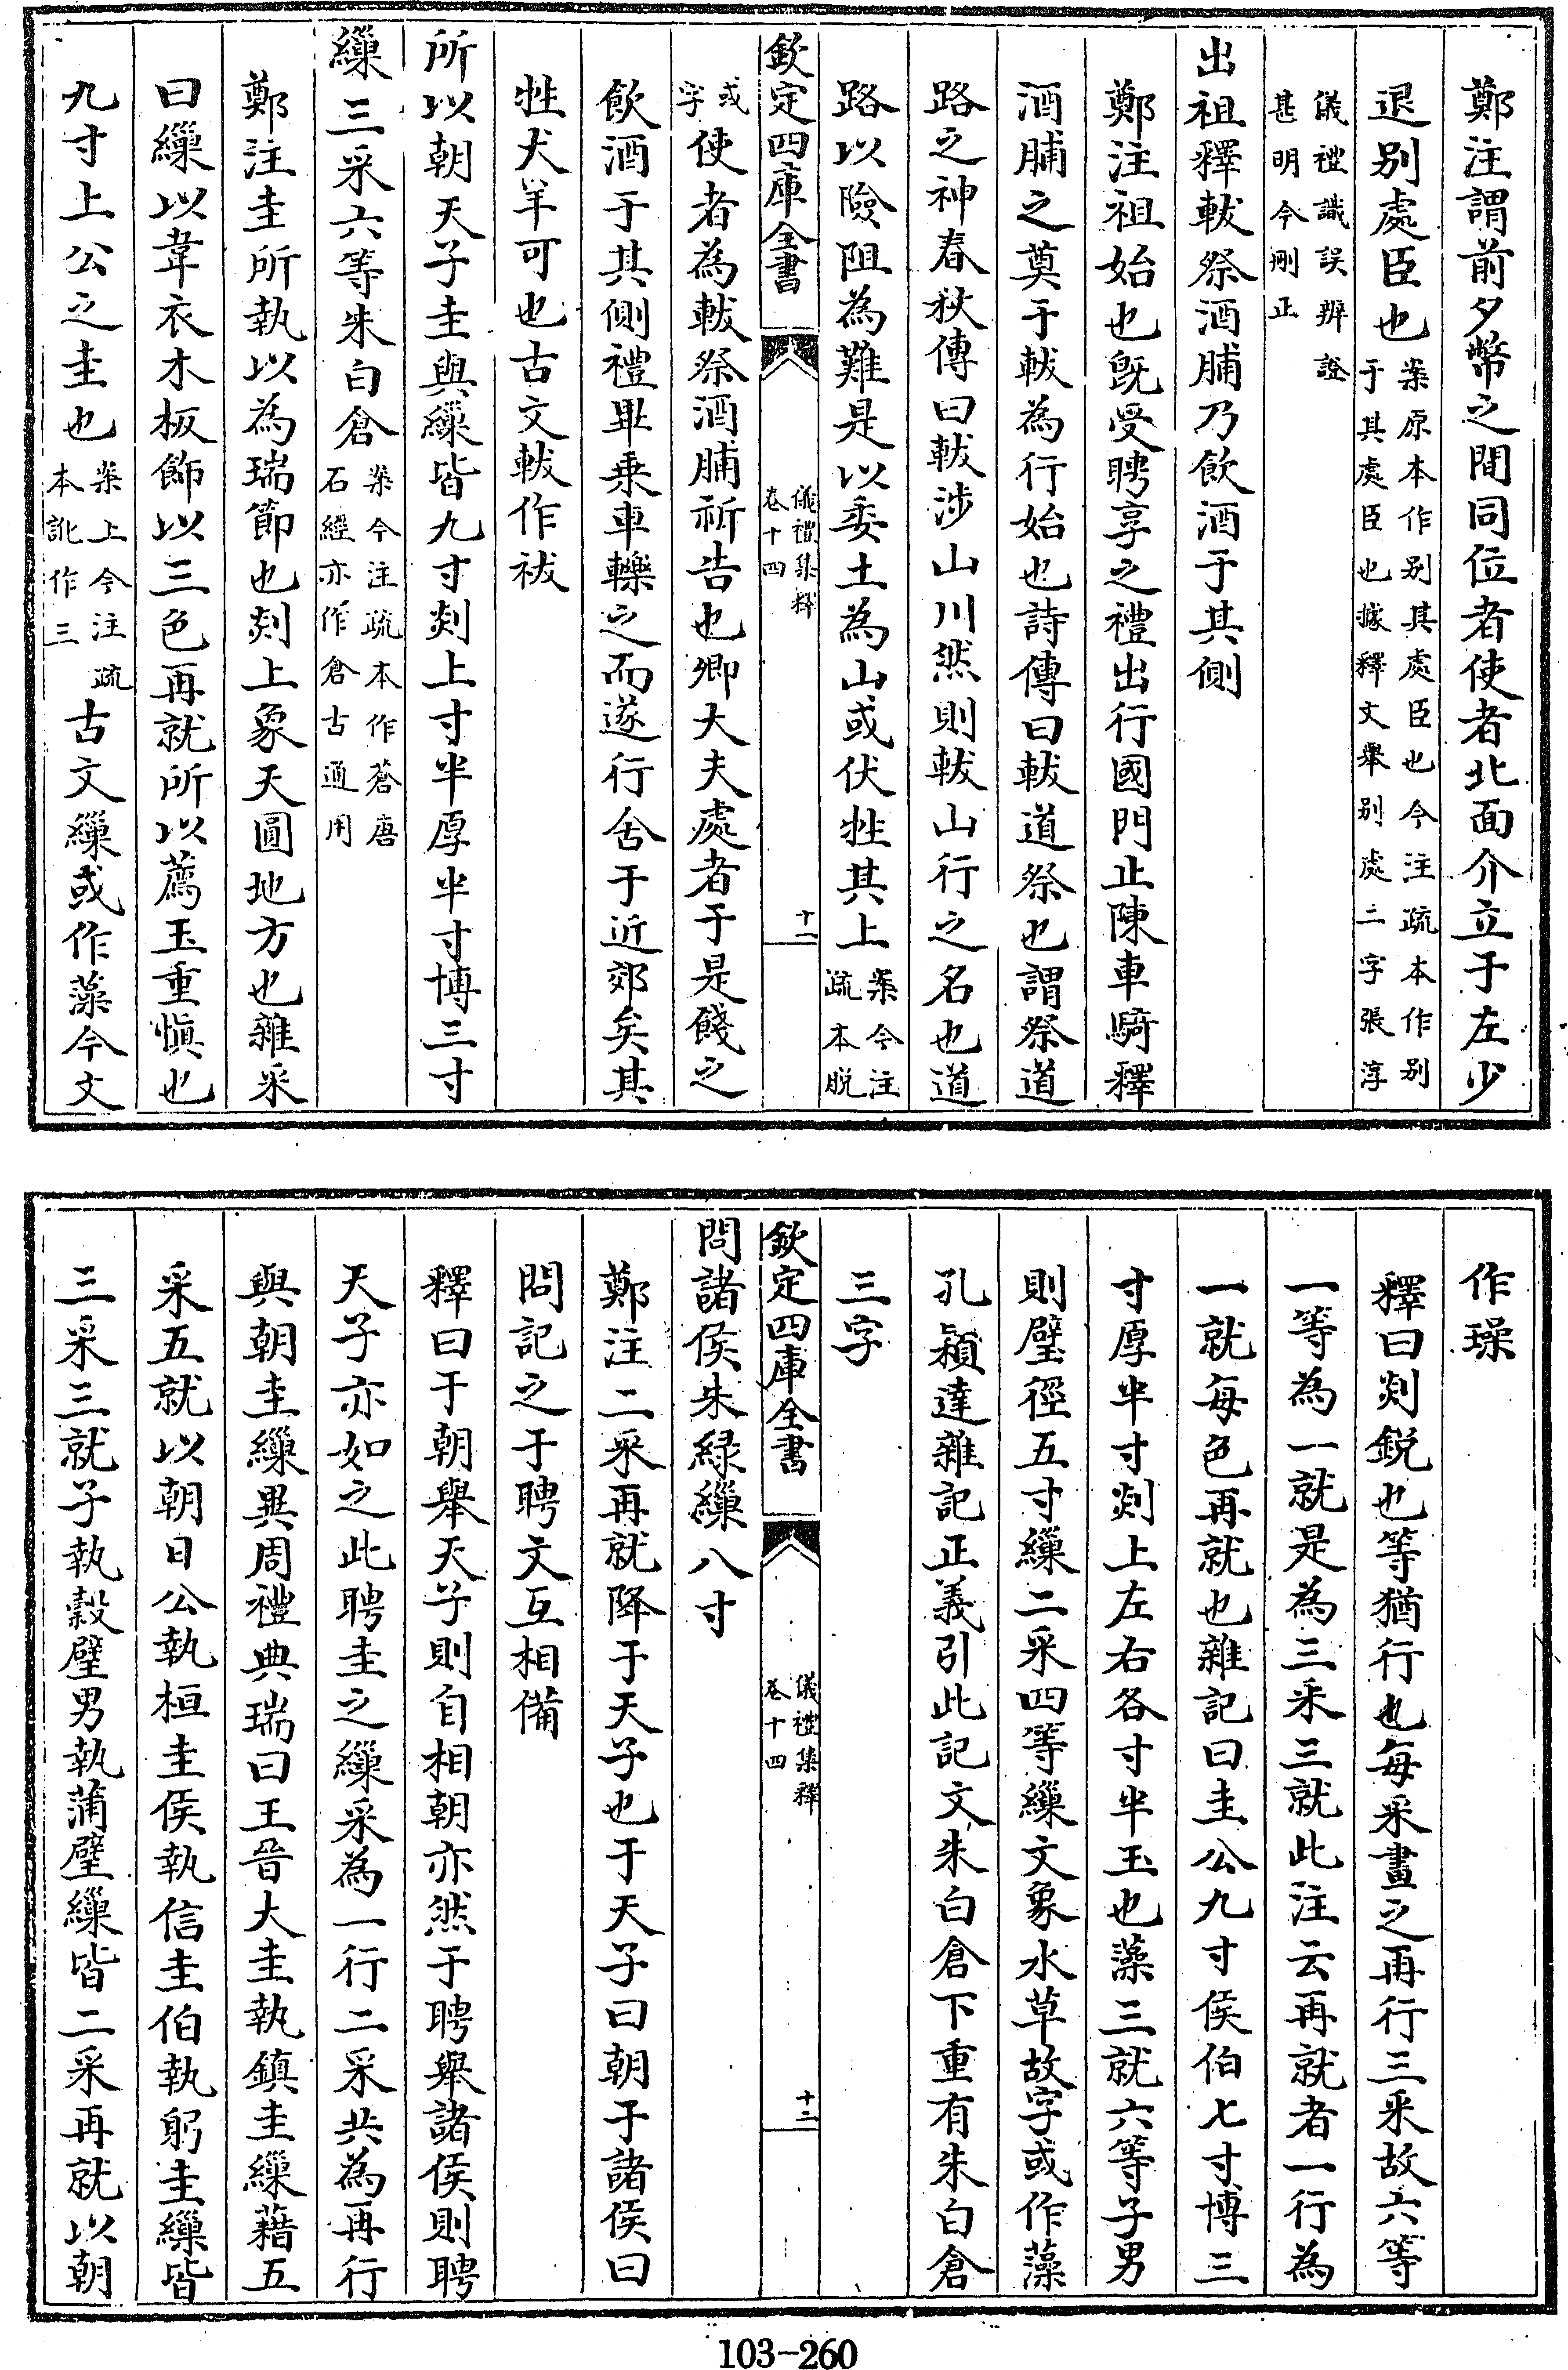 鄭注謂前夕幣之間同位者使者北面介立于左少
退别處臣也案原本作别其處臣也今注疏本作别于其處臣也據釋文舉别處二字張淳
儀禮識誤辨證甚明今刪正
出祖釋軷祭酒脯乃飲酒于其側
鄭注祖始也既受聘享之禮出行國門止陳車騎釋
酒脯之奠于軷為行始也詩傳曰軷道祭也謂祭道
路之神春秋傳曰軷涉山川然則軷山行之名也道
路以險阻為難是以委土為山或伏牲其上案今注疏本脱
欽定四庫全書 儀禮集釋卷十四 十一
或字使者為軷祭酒脯祈告也卿大夫處者于是餞之
飲酒于其側禮畢乗車轢之而遂行舍于近郊矣其
牲犬羊可也古文軷作祓
所以朝天子圭與繅皆九寸剡上寸半厚半寸博三寸
繅三采六等朱白倉案今注疏本作蒼唐石經亦作倉古通用
鄭注圭所執以為瑞節也剡上象天圓地方也雜采
曰繅以韋衣木板飾以三色再就所以薦玉重慎也
九寸上公之圭也案上今注疏本訛作三古文繅或作藻今文
作璪
釋曰剡鋭也等猶行也每采畫之再行三采故六等
一等為一就是為三采三就此注云再就者一行為
一就每色再就也雜記曰圭公九寸侯伯七寸博三
寸厚半寸剡上左右各寸半玉也藻三就六等子男
則璧徑五寸繅二采四等繅文象水草故字或作藻
孔穎達雜記正義引此記文朱白倉下重有朱白倉
三字
欽定四庫全書 儀禮集釋卷十四 十二
問諸侯朱緑繅八寸
鄭注二采再就降于天子也于天子曰朝于諸侯曰
問記之于聘文互相備
釋曰于朝舉天子則自相朝亦然于聘舉諸侯則聘
天子亦如之此聘圭之繅采為一行二采共為再行
與朝圭繅異周禮典瑞曰王晉大圭執鎮圭繅藉五
采五就以朝日公執桓圭侯執信圭伯執躬圭繅皆
三采三就子執穀璧男執蒲璧繅皆二采再就以朝
103-260